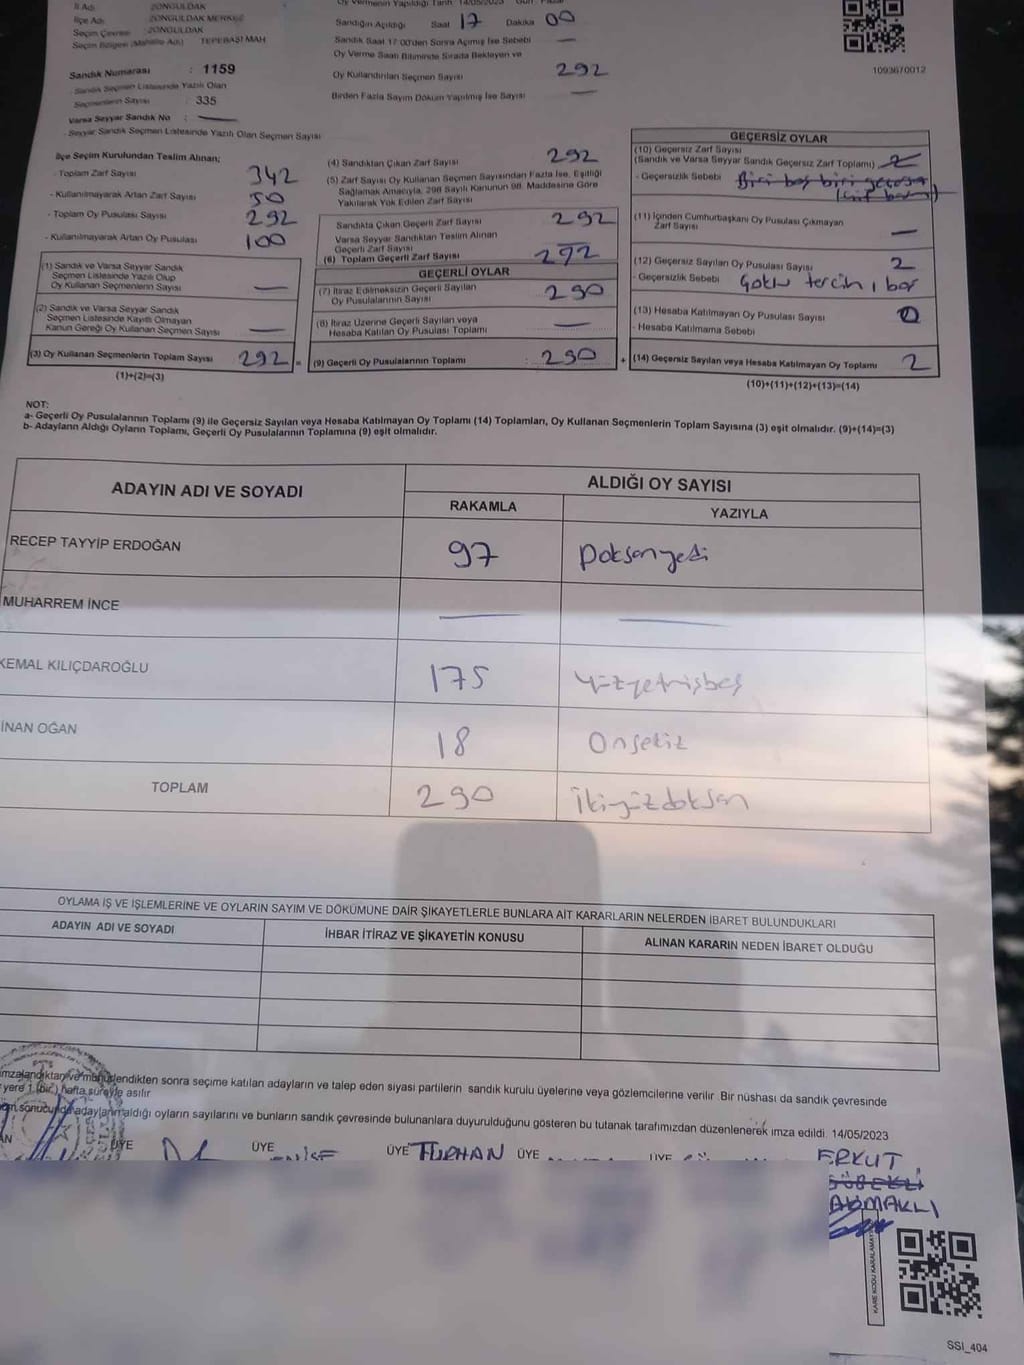 İl Adı : ZONGULDAK
İlçe Adı : ZONGULDAK MERKEZ
Seçim Çevresi : ZONGULDAK
Seçim Bölgesi (Mahalle Adı) : TEPEBAŞI MAH
Sandık Numarası : 1159
Sandık Seçmen Listesinde Yazılı Olan
Seçmenlerin Sayısı : 335
Varsa Seyyar Sandık No : —
- Seyyar Sandık Seçmen Listesinde Yazılı Olan Seçmen Sayısı
Oy Vermenin Yapıldığı Tarih 14/05/2023 Gün Pazar
Sandığın Açıldığı Saat 17 Dakika 00
Sandık Saat 17:00'den Sonra Açımış İse Sebebi —
Oy Verme Saati Bitiminde Sırada Bekleyen ve
Oy Kullandırılan Seçmen Sayısı 292
Birden Fazla Sayım Döküm Yapılmış İse Sayısı —
1093670012
İlçe Seçim Kurulundan Teslim Alınan;
- Toplam Zarf Sayısı 342
- Kullanılmayarak Artan Zarf Sayısı 50
- Toplam Oy Pusulası Sayısı 292
- Kullanılmayarak Artan Oy Pusulası 100
(1) Sandık ve Varsa Seyyar Sandık
Seçmen Listesinde Yazılı Olup
Oy Kullanan Seçmenlerin Sayısı —
(2) Sandık ve Varsa Seyyar Sandık
Seçmen Listesinde Kayıtlı Olmayan
Kanun Gereği Oy Kullanan Seçmen Sayısı —
(3) Oy Kullanan Seçmenlerin Toplam Sayısı 292 =
(1)+(2)=(3)
(4) Sandıktan Çıkan Zarf Sayısı 292
(5) Zarf Sayısı Oy Kullanan Seçmen Sayısından Fazla İse, Eşitliği
Sağlamak Amacıyla, 298 Sayılı Kanunun 98. Maddesine Göre
Yakılarak Yok Edilen Zarf Sayısı
Sandıkta Çıkan Geçerli Zarf Sayısı 292
Varsa Seyyar Sandıktan Teslim Alınan
Geçerli Zarf Sayısı —
(6) Toplam Geçerli Zarf Sayısı 292
GEÇERLİ OYLAR
(7) İtiraz Edilmeksizin Geçerli Sayılan
Oy Pusulalarının Sayısı : 290
(8) İtiraz Üzerine Geçerli Sayılan veya
Hesaba Katılan Oy Pusulası Toplamı —
(9) Geçerli Oy Pusulalarının Toplamı : 290 +
GEÇERSİZ OYLAR
(10) Geçersiz Zarf Sayısı
(Sandık ve Varsa Seyyar Sandık Geçersiz Zarf Toplamı) 2
- Geçersizlik Sebebi
(11) İçinden Cumhurbaşkanı Oy Pusulası Çıkmayan
Zarf Sayısı —
(12) Geçersiz Sayılan Oy Pusulası Sayısı 2
- Geçersizlik Sebebi tercih, boş
(13) Hesaba Katılmayan Oy Pusulası Sayısı 0
- Hesaba Katılmama Sebebi
(14) Geçersiz Sayılan veya Hesaba Katılmayan Oy Toplamı 2
(10)+(11)+(12)+(13)=(14)
NOT:
a- Geçerli Oy Pusulalarının Toplamı (9) ile Geçersiz Sayılan veya Hesaba Katılmayan Oy Toplamı (14) Toplamları, Oy Kullanan Seçmenlerin Toplam Sayısına (3) eşit olmalıdır. (9)+(14)=(3)
b- Adayların Aldığı Oyların Toplamı, Geçerli Oy Pusulalarının Toplamına (9) eşit olmalıdır.
ADAYIN ADI VE SOYADI ALDIĞI OY SAYISI
RAKAMLA YAZIYLA
RECEP TAYYİP ERDOĞAN 97 Doksanyedi
MUHARREM İNCE — —
KEMAL KILIÇDAROĞLU 175 Yüzyetmişbeş
İNAN OĞAN 18 Onsekiz
TOPLAM 290 İkiyüzdoksan
OYLAMA İŞ VE İŞLEMLERİNE VE OYLARIN SAYIM VE DÖKÜMÜNE DAİR ŞİKAYETLERLE BUNLARA AİT KARARLARIN NELERDEN İBARET BULUNDUKLARI
ADAYIN ADI VE SOYADI İHBAR İTİRAZ VE ŞİKAYETİN KONUSU ALINAN KARARIN NEDEN İBARET OLDUĞU
imzalandıktan ve mühürlendikten sonra seçime katılan adayların ve talep eden siyasi partilerin sandık kurulu üyelerine veya gözlemcilerine verilir. Bir nüshası da sandık çevresinde
yere 1 (bir) hafta süreyle asılır
sonucunda adayların aldığı oyların sayılarını ve bunların sandık çevresinde bulunanlara duyurulduğunu gösteren bu tutanak tarafımızdan düzenlenerek imza edildi. 14/05/2023
ÜYE ÜYE ÜYE TURHAN ÜYE ÜYE ERKUT
KARE KODU KARALAMAY
SSI_404